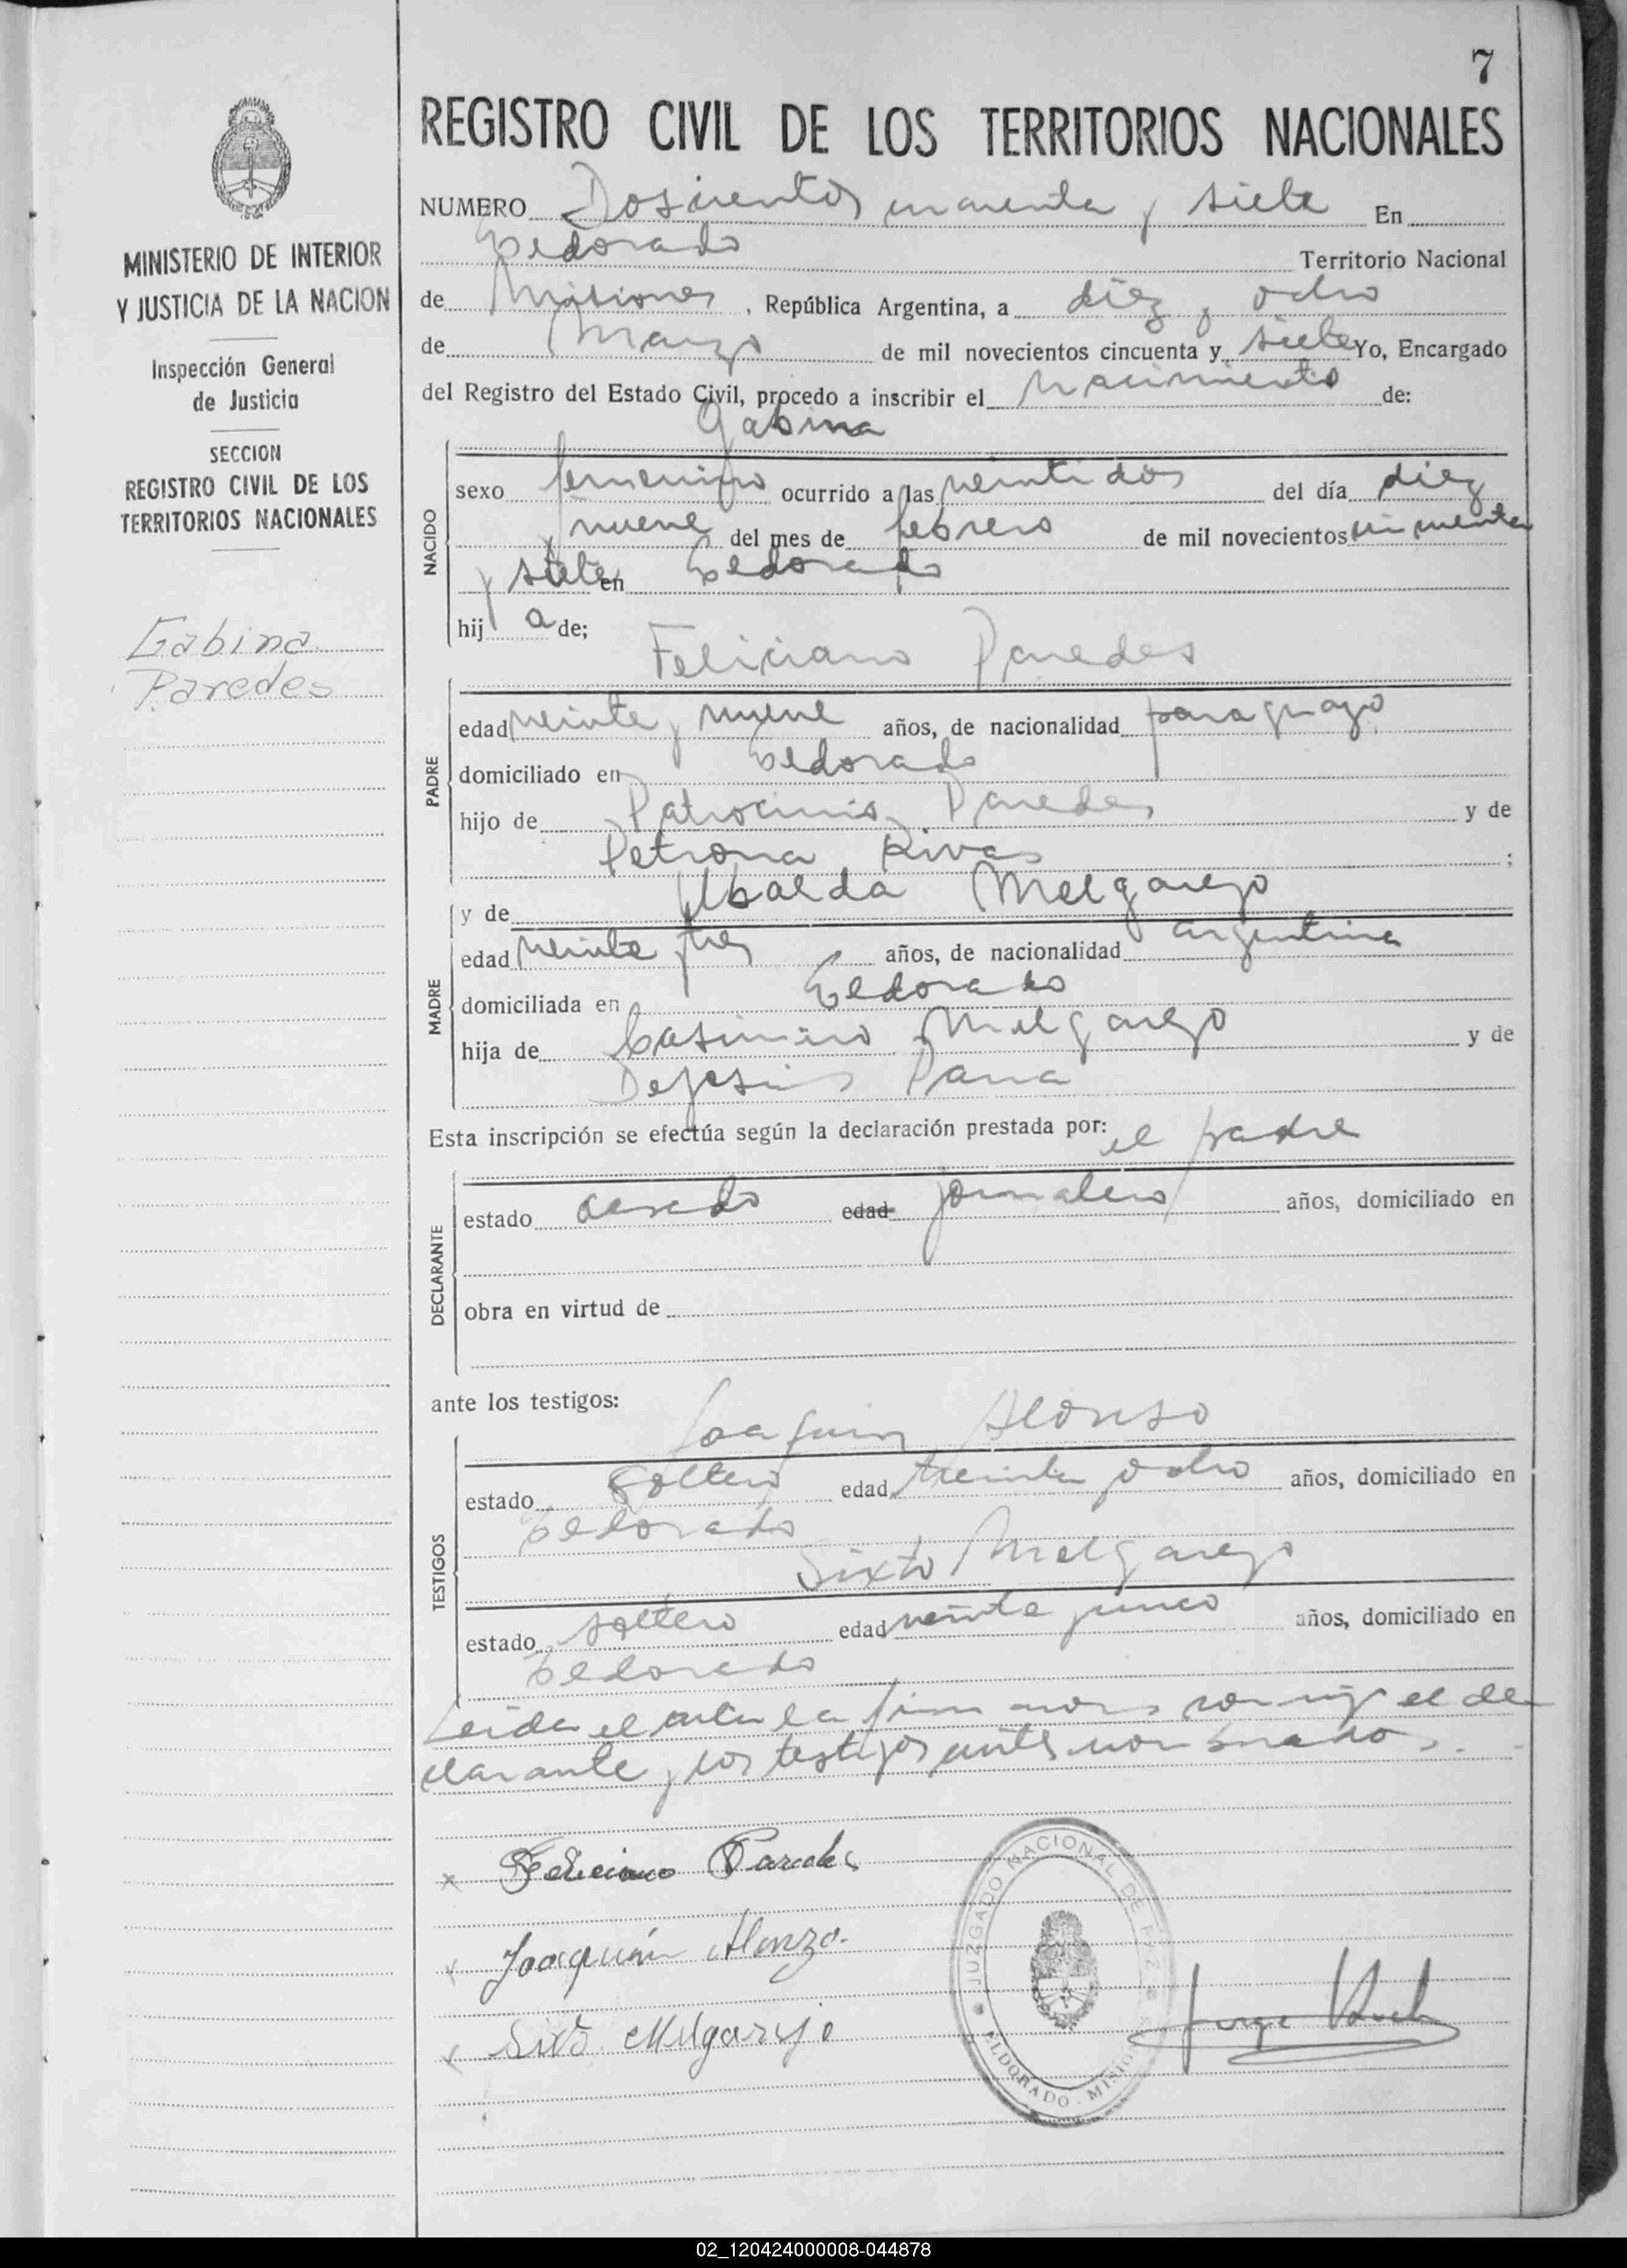 7
REGISTRO CIVIL DE LOS TERRITORIOS NACIONALES
MINISTERIO DE INTERIOR
Y JUSTICIA DE LA NACION
Inspección General
de Justicia
SECCION
REGISTRO CIVIL DE LOS
TERRITORIOS NACIONALES
Gabina
Paredes
NUMERO Doscientos cuarenta y siete En
Eldorado Territorio Nacional
de Misiones, República Argentina, a diez y ocho
de Marzo de mil novecientos cincuenta y siete Yo, Encargado
del Registro del Estado Civil, procedo a inscribir el nacimiento de:
Gabina
NACIDO
sexo femenino ocurrido a las veintidos del día diez
y nueve del mes de febrero de mil novecientos cincuenta
y siete en Eldorado
hija de;
Feliciano Paredes
PADRE
edad veinte y nueve años, de nacionalidad paraguayo
domiciliado en Eldorado
hijo de Patrocinio Paredes y de
Petrona Rivas ;
MADRE
y de Ubalda Melgarejo
edad veinte y tres años, de nacionalidad argentina
domiciliada en Eldorado
hija de Casimiro Melgarejo y de
Dejesús Parra
Esta inscripción se efectúa según la declaración prestada por: el padre
DECLARANTE
estado casado edad jornalero años, domiciliado en
obra en virtud de
ante los testigos:
Joaquin Alonso
TESTIGOS
estado soltero edad treinta y ocho años, domiciliado en
Eldorado
Sixto Melgarejo
estado soltero edad veinte y cinco años, domiciliado en
Eldorado
Leida el acta la firmamos conmigo el de
clarante y los testigos antes nombrados.
x Feliciano Paredes
x Joaquín Alonzo.
x Sixto Melgarejo
JUZGADO NACIONAL DE PAZ
ELDORADO - MISIONES
Jorge
02_120424000008-044878